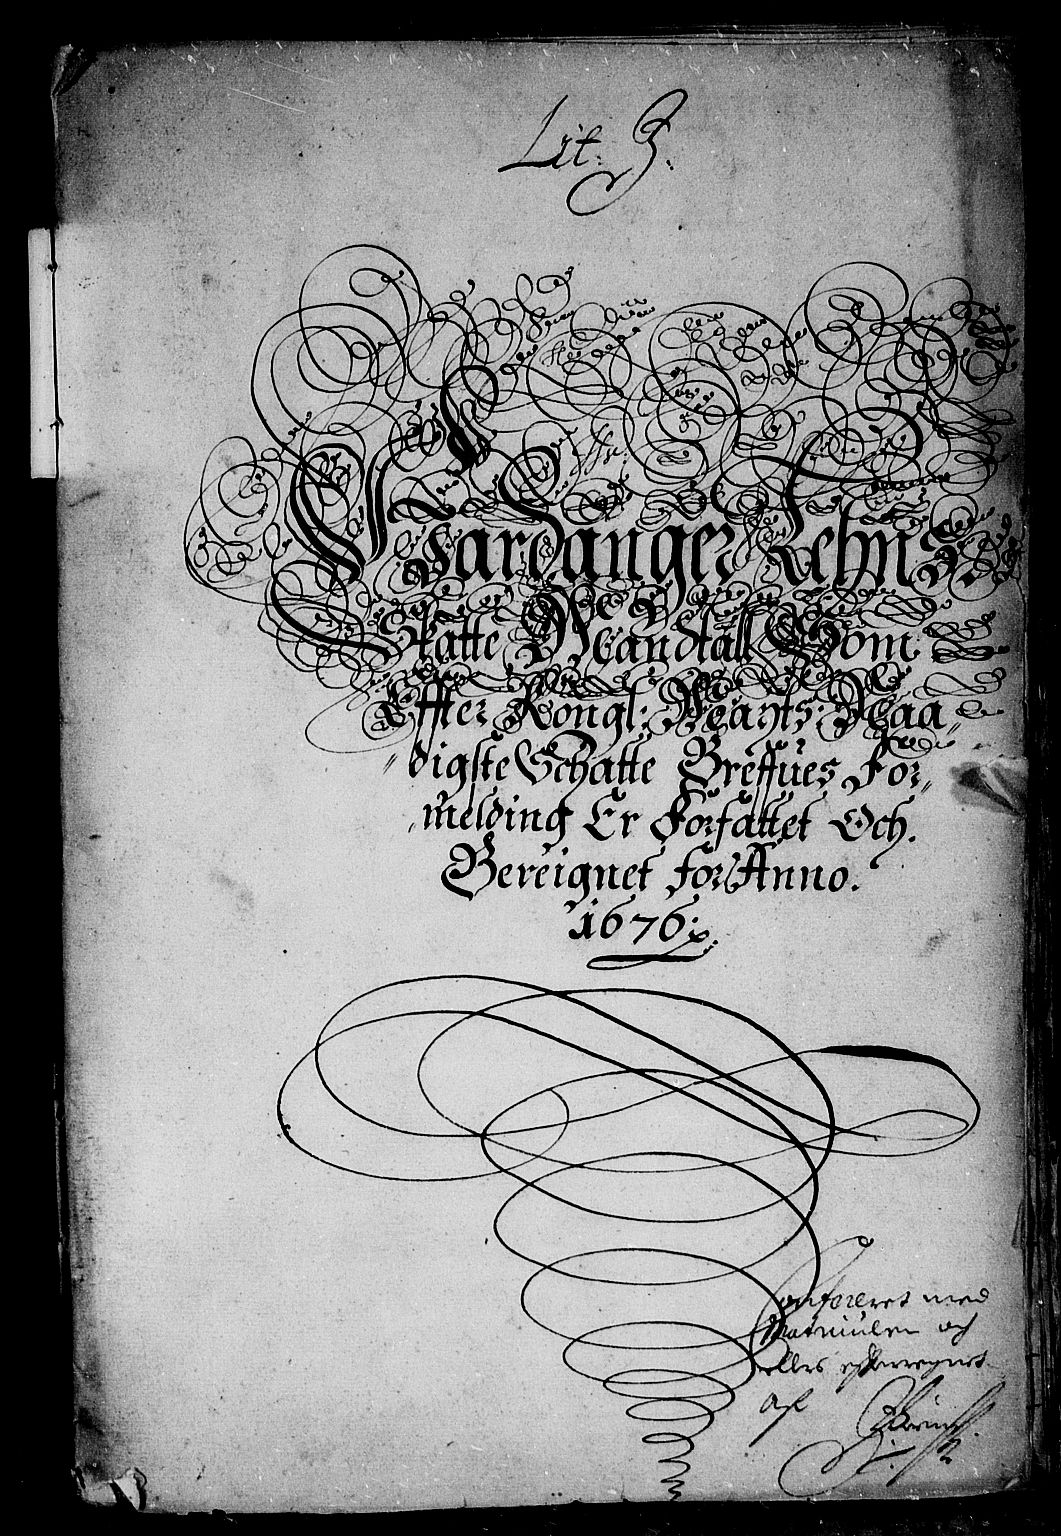 Lit: J.
Hardanger Lehns
Skatte Mandtall Som
Effter Kongl: Mayts: Naa„
„digste Schatte Breffues For„
„melding Er Forfattet Och.
Bereignet for Anno.
1676:
Conföreret med
Matriculen och
elles efterregnet
Af